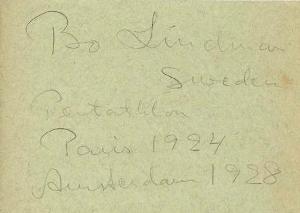 Bo Lindman
Sweden
Pentathlon
Paris 1924
Amsterdam 1928